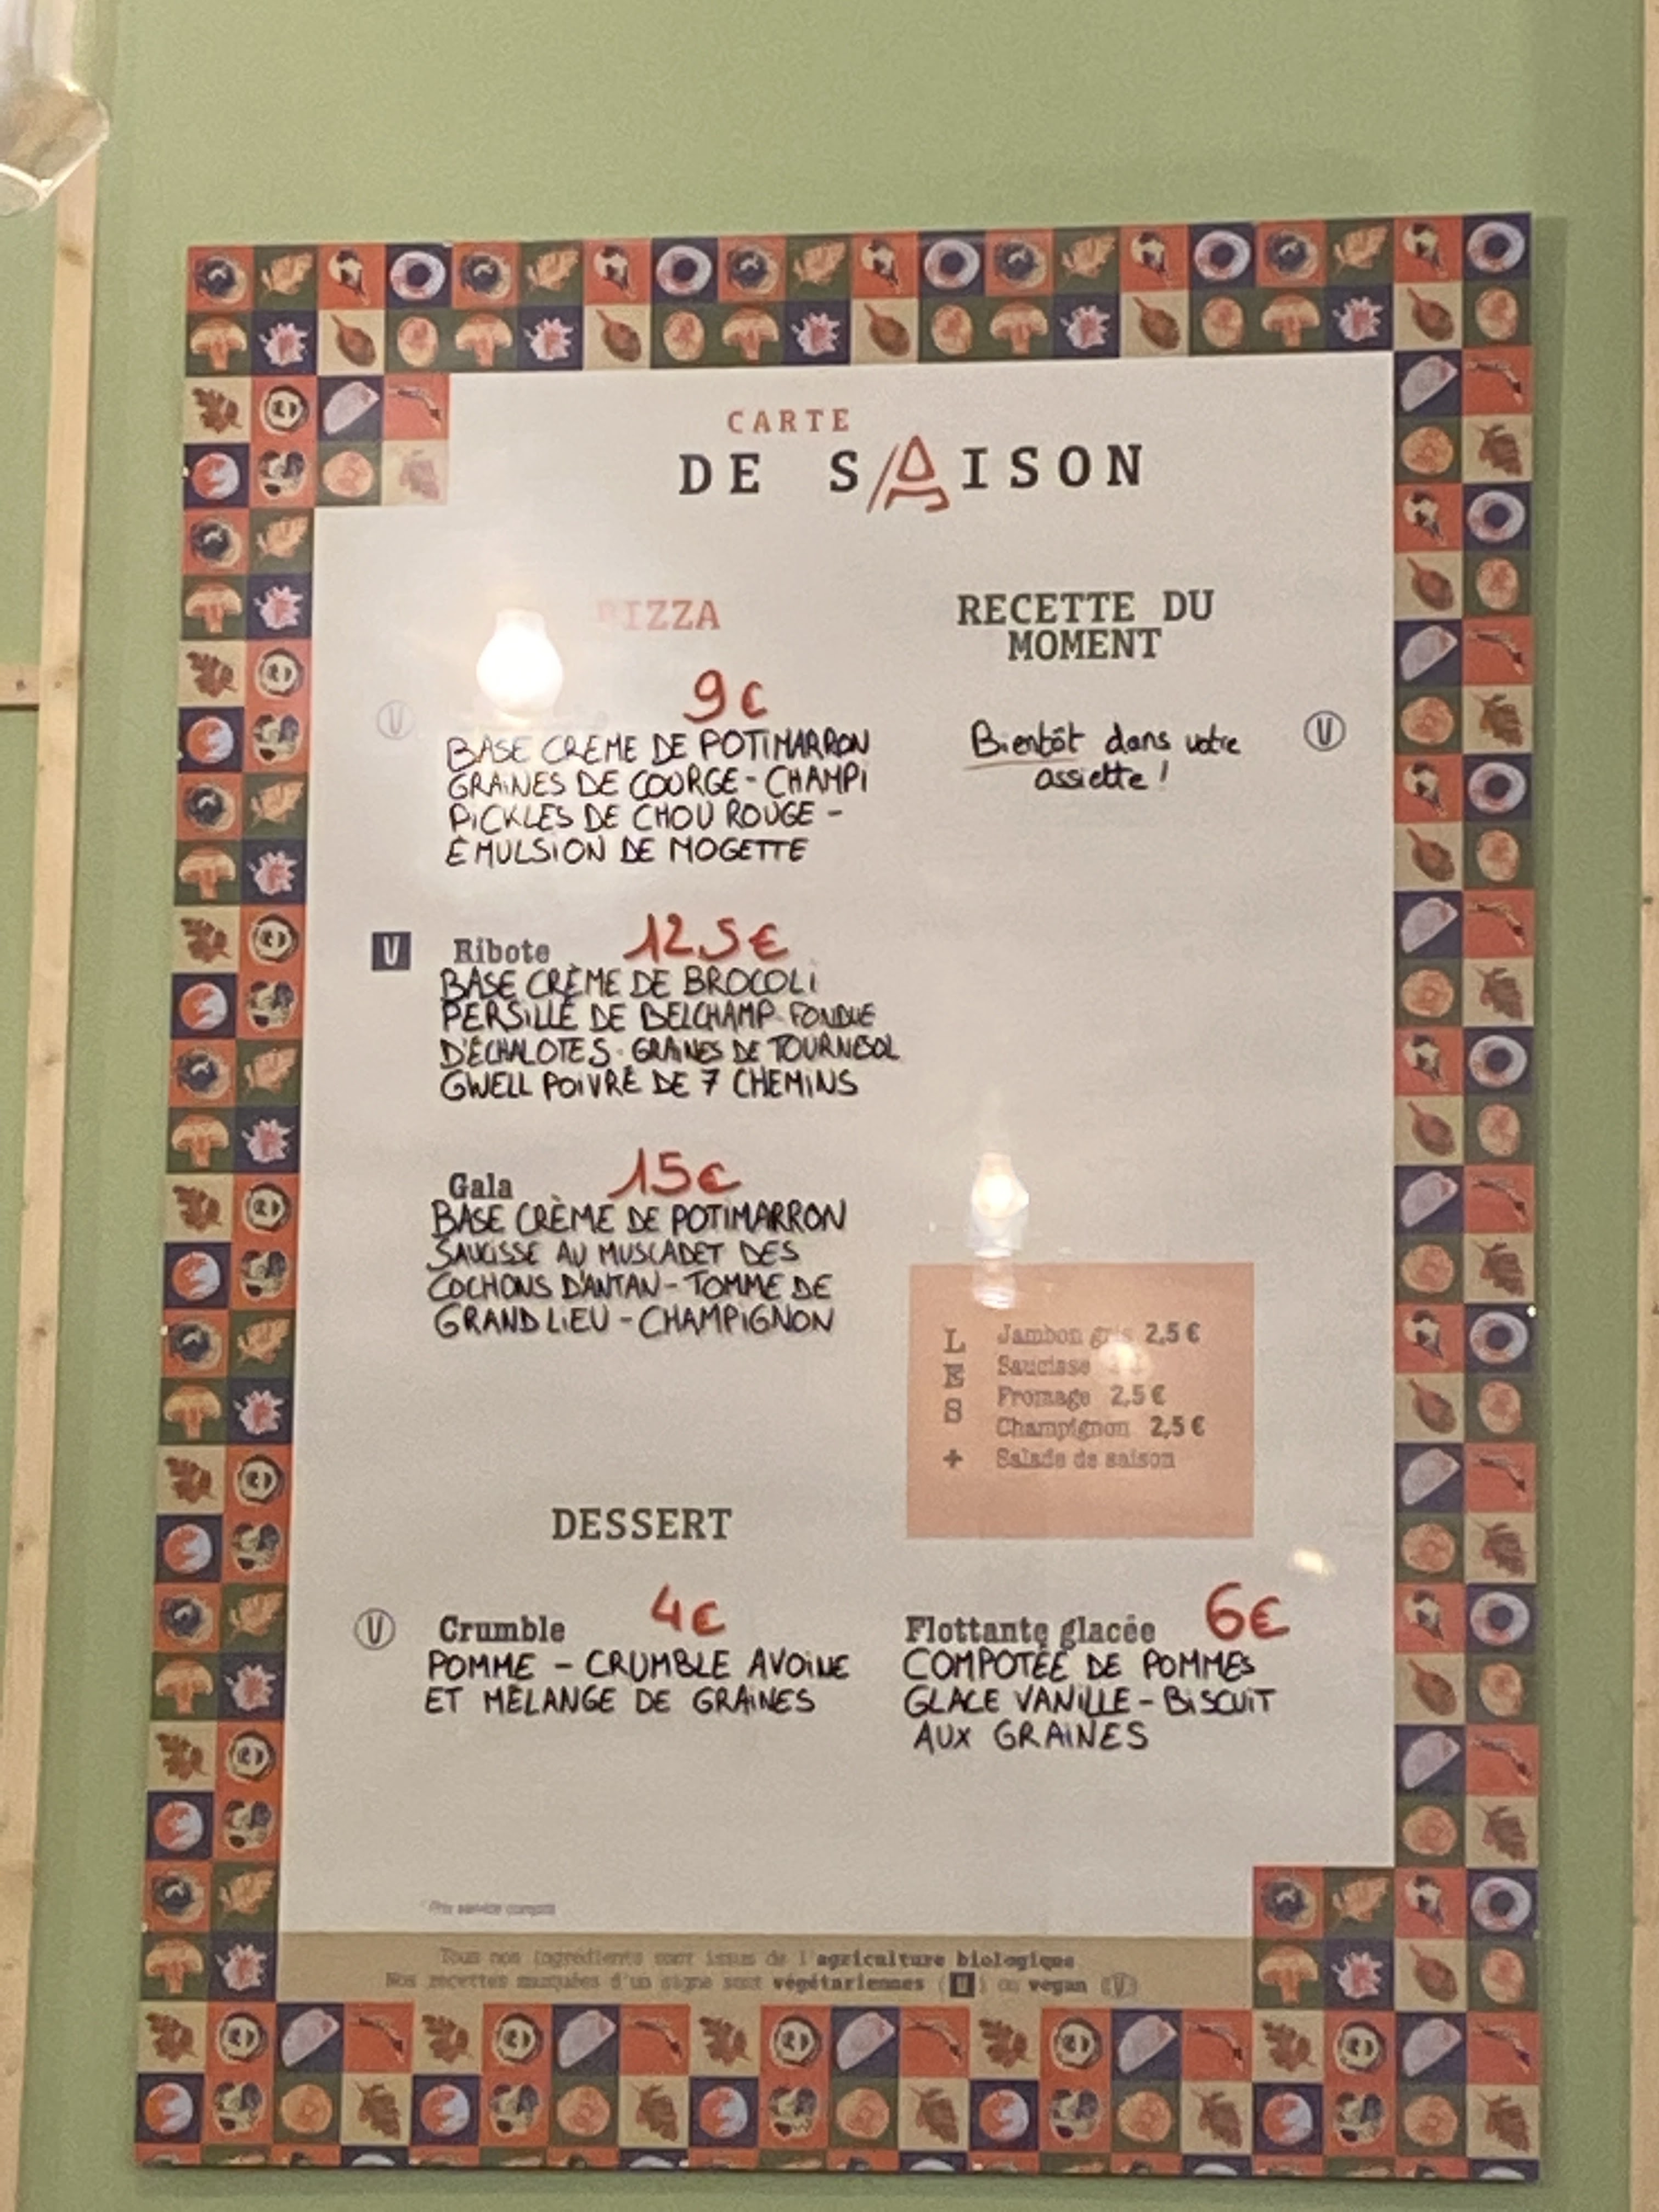 CARTE
DE SAISON
PIZZA
9€
BASE CRÈME DE POTIMARRON
GRAINES DE COURGE - CHAMPI
PICKLES DE CHOU ROUGE -
ÉMULSION DE MOGETTE
Ribote 12.5€
BASE CRÈME DE BROCOLI
PERSILLÉ DE BELCHAMP FONDUE
D'ÉCHALOTES - GRAINES DE TOURNESOL
GWELL POIVRE DE 7 CHEMINS
Gala 15€
BASE CRÈME DE POTIMARRON
SAUCISSE AU MUSCADET DES
COCHONS D'ANTAN - TOMME DE
GRAND LIEU - CHAMPIGNON
RECETTE DU
MOMENT
Bientôt dans votre
assiette !
LES +
Jambon gris 2,5 €
Saucisse
Fromage 2,5 €
Champignon 2,5 €
Salade de saison
DESSERT
Crumble 4€
POMME - CRUMBLE AVOINE
ET MÉLANGE DE GRAINES
Flottante glacée 6€
COMPOTÉE DE POMMES
GLACE VANILLE - BISCUIT
AUX GRAINES
* Prix service compris
Tous nos ingrédients sont issus de l'agriculture biologique
Nos recettes marquées d'un signe sont végétariennes (V) ou vegan (V)